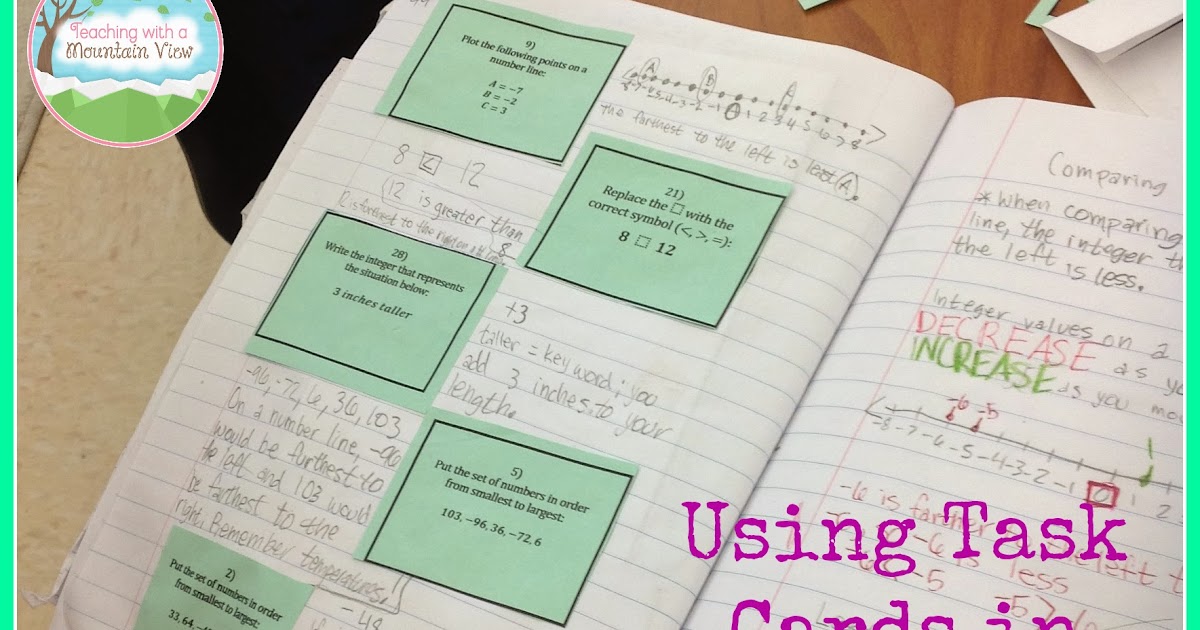 Teaching with a
Mountain View
9)
Plot the following points on a
number line:
A = -7
B = -2
C = 3
A B C
-8 -7 -6 -5 -4 -3 -2 -1 0 1 2 3 4 5 6 7 8
the farthest to the left is least (A).
8 < 12
12 is greater than
8
21)
Replace the □ with the
correct symbol (<, >, =):
8 □ 12
28)
Write the integer that represents
the situation below:
3 inches taller
+3
taller = keyword; you
add 3 inches to your
length.
-96, -72, 6, 36, 103
On a number line, -96
would be furthest to
the left and 103 would
be farthest to the
right. Remember
temperatures!!
5)
Put the set of numbers in order
from smallest to largest:
103, -96, 36, -72, 6
2)
Put the set of numbers in order
from smallest to largest:
33, 64,
-48
Comparing
* When comparing
line, the integer
the left is less.
Integer values on a
DECREASE as you
INCREASE as you mov
-6 -5
-8 -7 -6 -5 -4 -3 -2 -1 0 1 2
-6 is farther
left
-6 is less
-5
-5 >
Using Task
Cards in